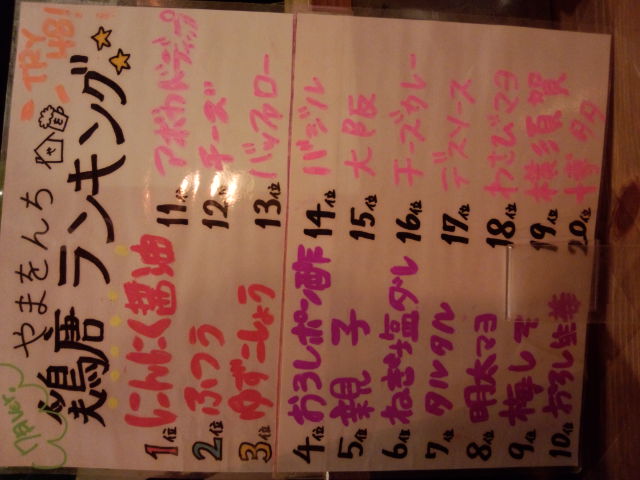 TRY
48!
やまをんち
鶏唐ランキング
1位 にんにく醤油
2位 ふつう
3位 ゆずこしょう
4位 おろしポン酢
5位 親子
6位 ねぎ塩ダレ
7位 タルタル
8位 明太マヨ
9位 梅しそ
10位 おろし生姜
11位 アボカドディップ
12位 チーズ
13位 バッファロー
14位 バジル
15位 大阪
16位 チーズカレー
17位 デスソース
18位 わさびマヨ
19位 横須賀
20位